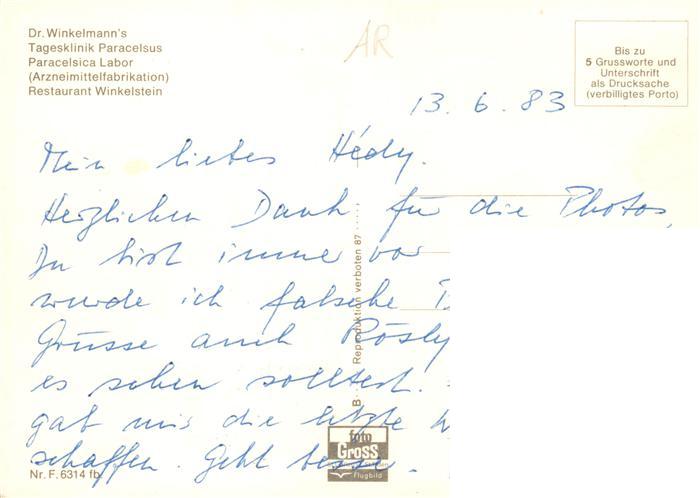 Dr. Winkelmann's
Tagesklinik Paracelsus
Paracelsica Labor
(Arzneimittelfabrikation)
Restaurant Winkelstein
AR
Bis zu
5 Grussworte und
Unterschrift
als Drucksache
(verbilligtes Porto)
13. 6. 83
Mein liebes Hédy.
Herzlichen Dank für die Photos,
Du bist immer vor
wurde ich falsche
Grüsse auch Rösly
es sehen solltest.
gab mir die letzte
schaffen. Geht besser.
B. Reproduktion verboten 87
foto
Gross
Flugbild
Nr. F. 6314 fb